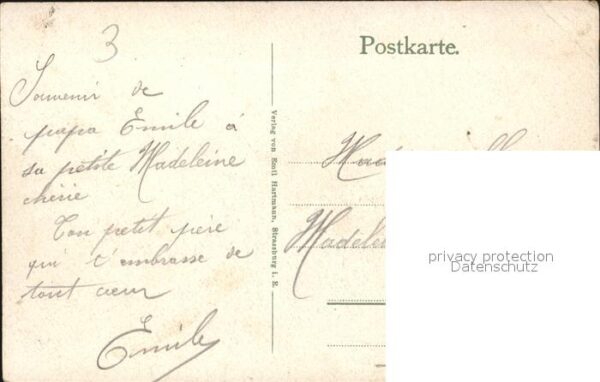 3
Postkarte.
Souvenir de
papa Emile á
sa petite Madeleine
chérie
Ton petit père
qui t'embrasse de
tout cœur
Emile
Verlag von Emil Hartmann, Strassburg i. E.
Madeleine
privacy protection
Datenschutz